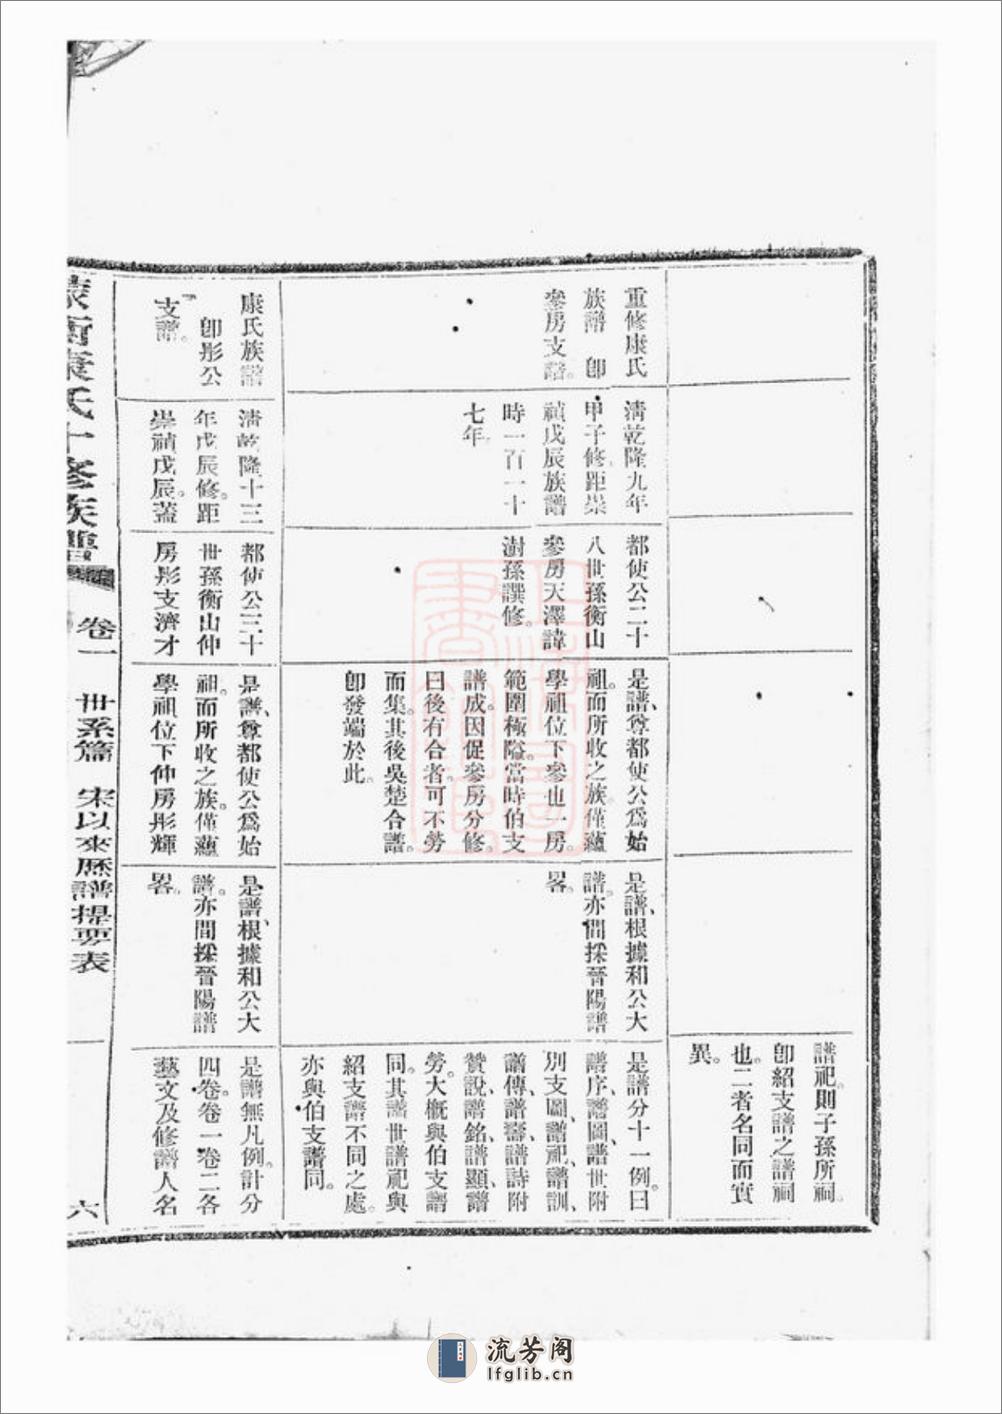 譜祀則子孫所祠
卽紹支譜之譜祠
也。二者名同而實
異。
重修康氏
族譜　卽
參房支譜。
清乾隆九年
甲子修。距崇
禎戊辰族譜
時一百一十
七年。
都使公二十
八世孫衡山
參房天澤諱
澍孫譔修。
是譜、尊都使公爲始
祖。而所收之族。僅蘊
學祖位下參也一房。
範圍極隘。當時伯支
譜成。因促參房分修。
曰後有合者。可不勞
而集。其後吳楚合譜。
卽發端於此。
是譜、根據和公大
譜。亦間採晉陽譜
畧。
是譜分十一例。曰
譜序、譜圖、譜世附
別支圖、譜祀、譜訓、
譜傳、譜壽、譜詩附
贊說、譜銘、譜顯、譜
勞。大概與伯支譜
同。其譜世譜祀與
紹支譜不同之處。
亦與伯支譜同。
康氏族譜
卽彤公
支譜。
清乾隆十三
年戊辰修。距
崇禎戊辰。蓋
都使公三十
世孫衡山仲
房彤支濟才
是譜、尊都使公爲始
祖。而所收之族。僅蘊
學祖位下仲房彤輝
是譜、根據和公大
譜。亦間採晉陽譜
畧。
是譜無凡例。計分
四卷。卷一卷二各
藝文及修譜人名
衡康氏十修族譜
卷一　世系篇　宋以來歷譜提要表
六
流芳阁
lfglib.cn